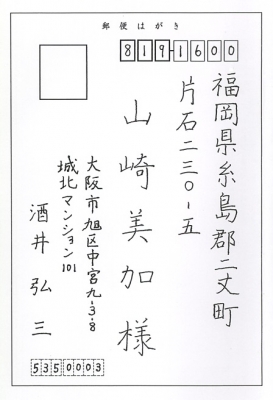 郵便はがき
8191600
福岡県糸島郡二丈町
片石二三〇-五
山崎美加様
大阪市旭区中宮九-3-8
城北マンション101
酒井弘三
5350003